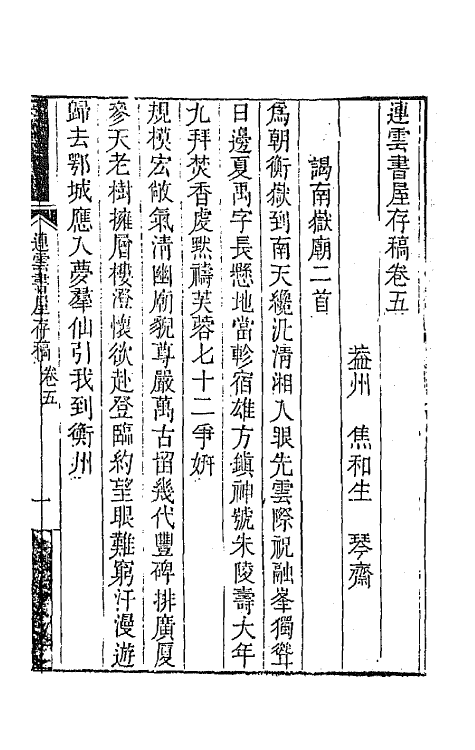 連雲書屋存稿卷五
益州 焦和生 琴齋
謁南嶽廟二首
爲朝衡嶽到南天纔汎淸湘入眼先雲際祝融峯獨聳
日邊夏禹字長懸地當軫宿雄方鎭神號朱陵壽大年
九拜焚香虔默禱芙蓉七十二爭姸
規模宏敞氣淸幽廟貌尊嚴萬古留幾代豐碑排廣厦
參天老樹擁層樓澄懷欲赴登臨約望眼難窮汗漫遊
歸去鄂城應入夢羣仙引我到衡州
連雲書屋存稿 卷五 一